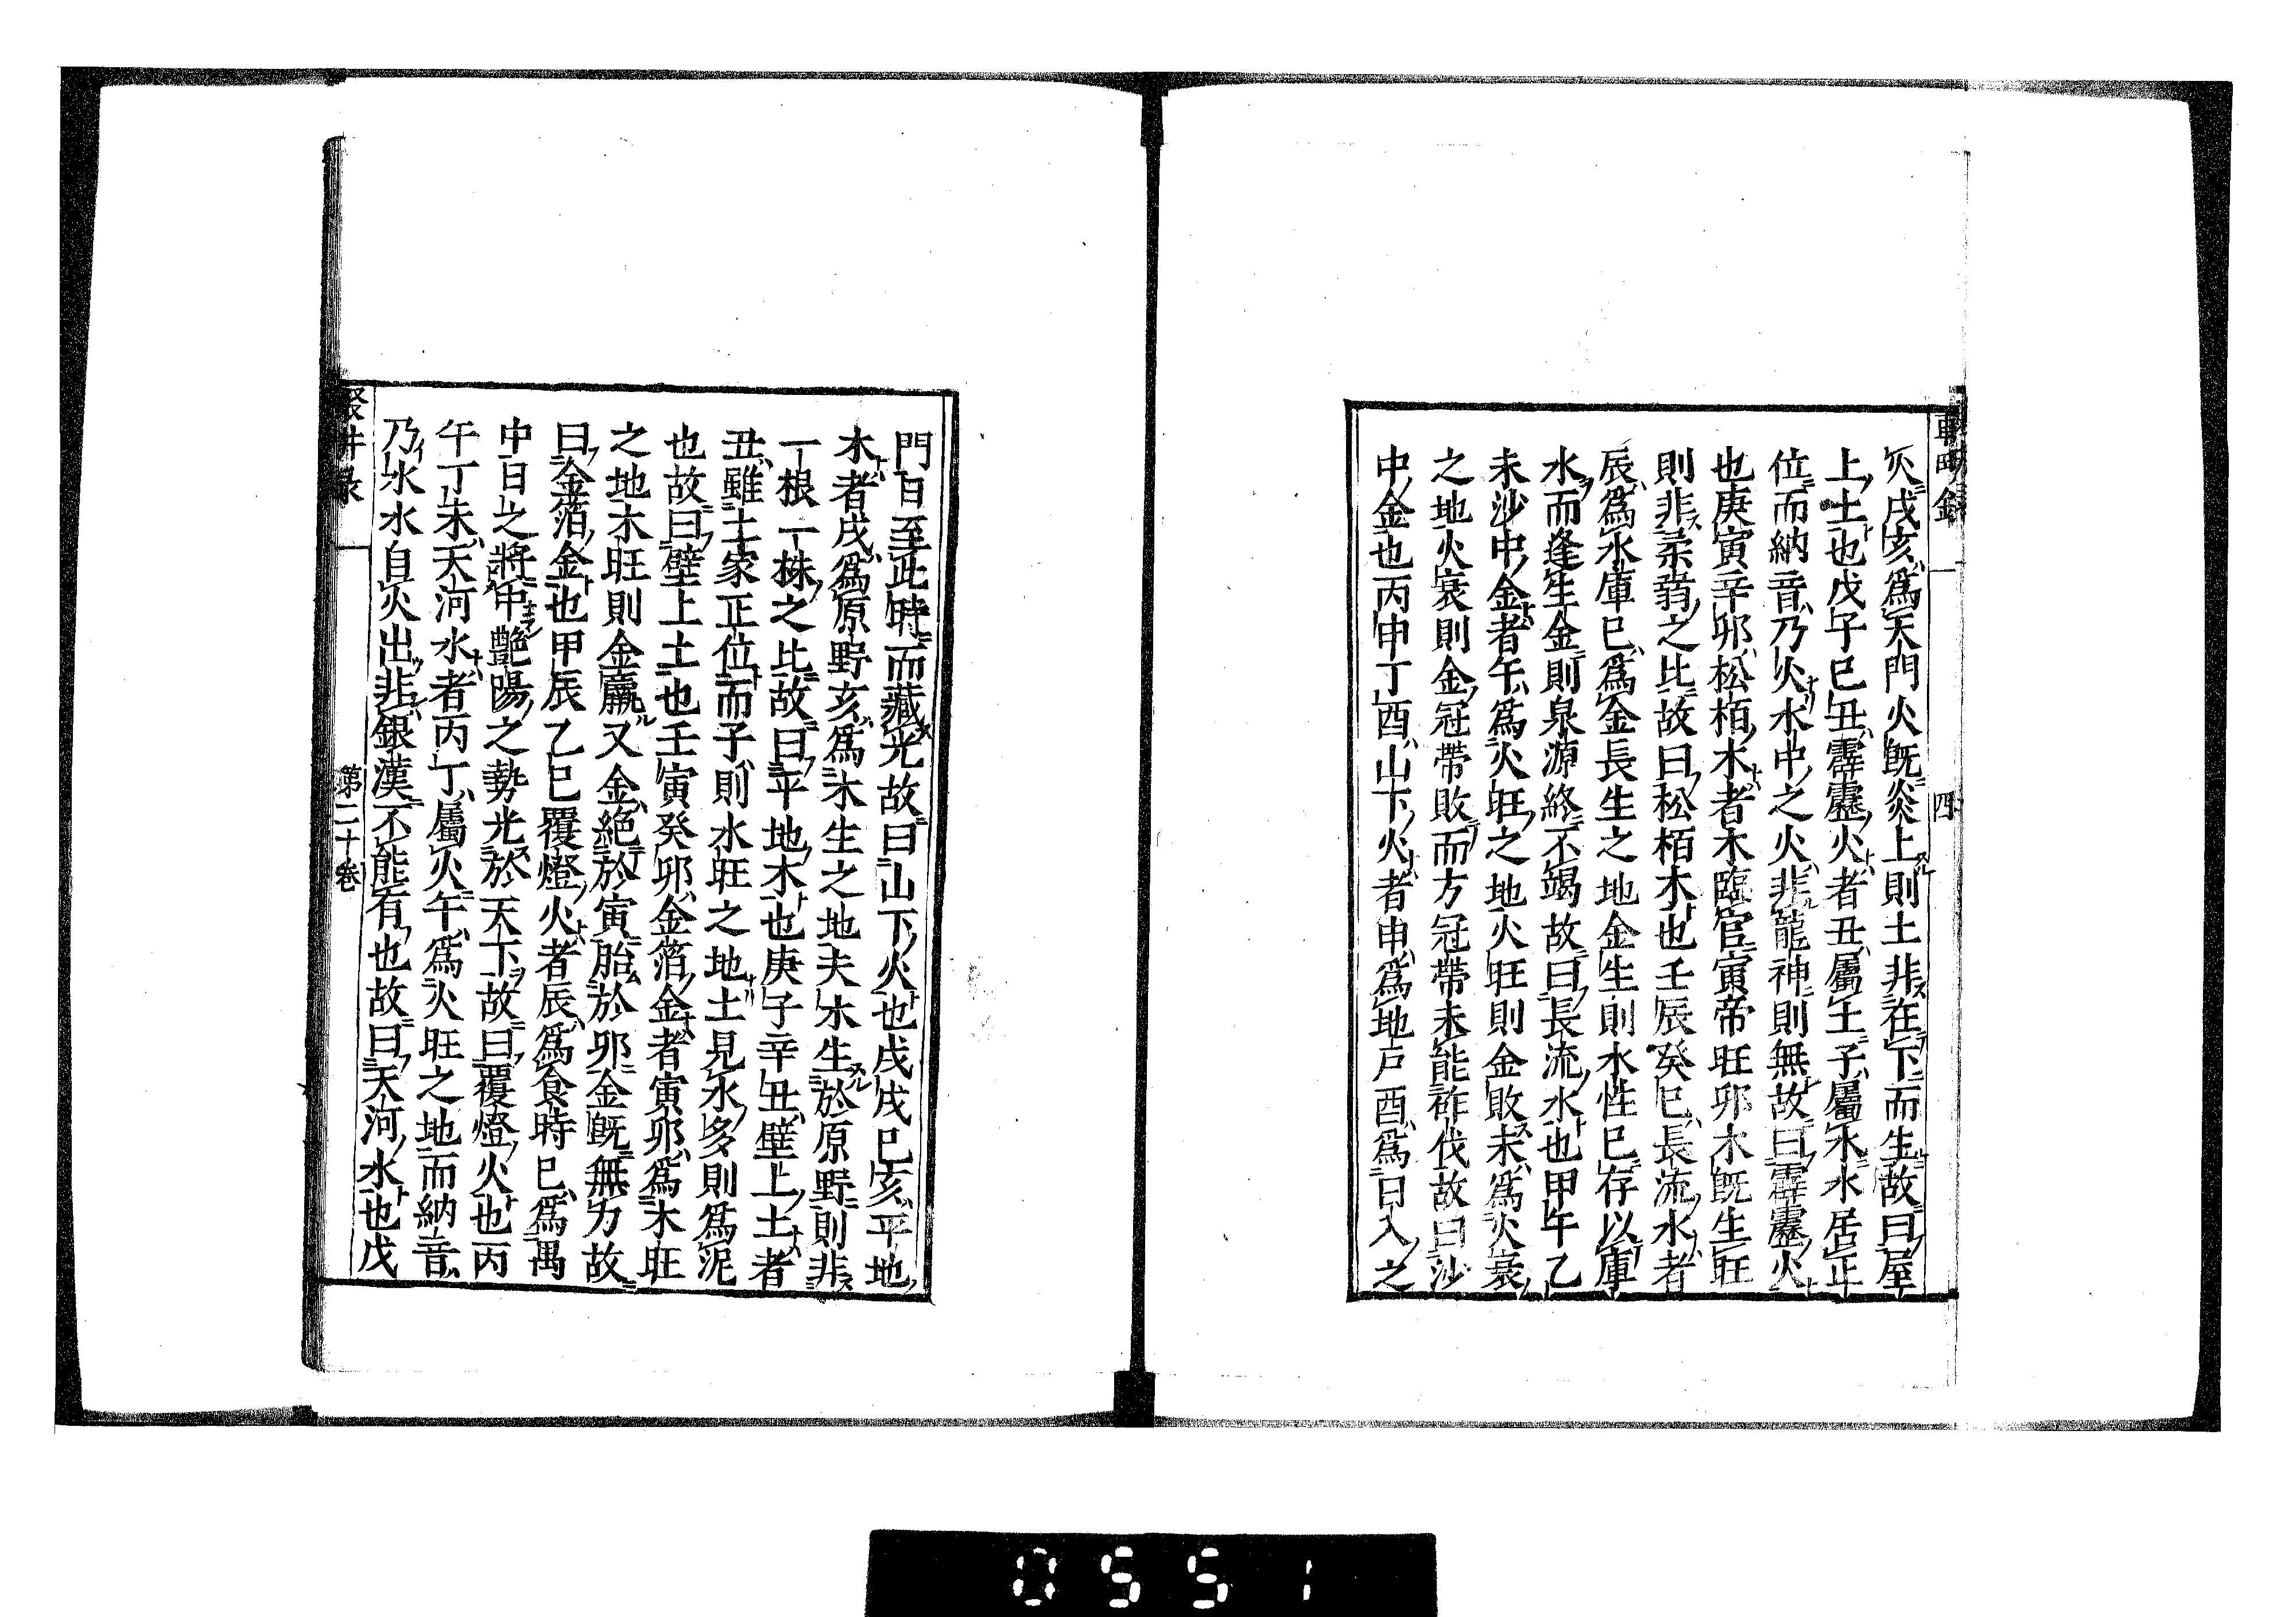 火戌亥爲天門火既炎上則土非在下而生故曰屋
上土也戊子巳丑霹靂火者丑屬土子屬水水居正
位而納音乃火水中之火非龍神則無故曰霹靂火
也庚寅辛卯松栢木者木臨官寅帝旺卯木既生旺
則非柔蒻之比故曰松栢木也壬辰癸巳長流水者
辰爲水庫巳爲金長生之地金生則水性已存以庫
水而逢生金則泉源終不竭故曰長流水也甲午乙
未沙中金者午爲火旺之地火旺則金敗未爲火衰
之地火衰則金冠帶敗而方冠帶未能斫伐故曰沙
中金也丙申丁酉山下火者申爲地戸酉爲日入之
四
門日至此時而藏光故曰山下火也戊戌巳亥平地
木者戌爲原野亥爲木生之地夫木生於原野則非
一根一株之比故曰平地木也庚子辛丑壁上土者
丑雖土家正位而子則水旺之地土見水多則爲泥
也故曰壁上土也壬寅癸卯金箔金者寅卯爲木旺
之地木旺則金羸又金絶於寅胎於卯金既無力故
曰金箔金也甲辰乙巳覆燈火者辰爲食時巳爲禺
中日之將中艶陽之勢光於天下故曰覆燈火也丙
午丁未天河水者丙丁屬火午爲火旺之地而納音
乃水水自火出非銀漢不能有也故曰天河水也戊
第二十巻
0551